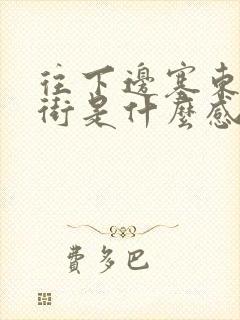 往下邊塞東
街是什麼感
費多巴